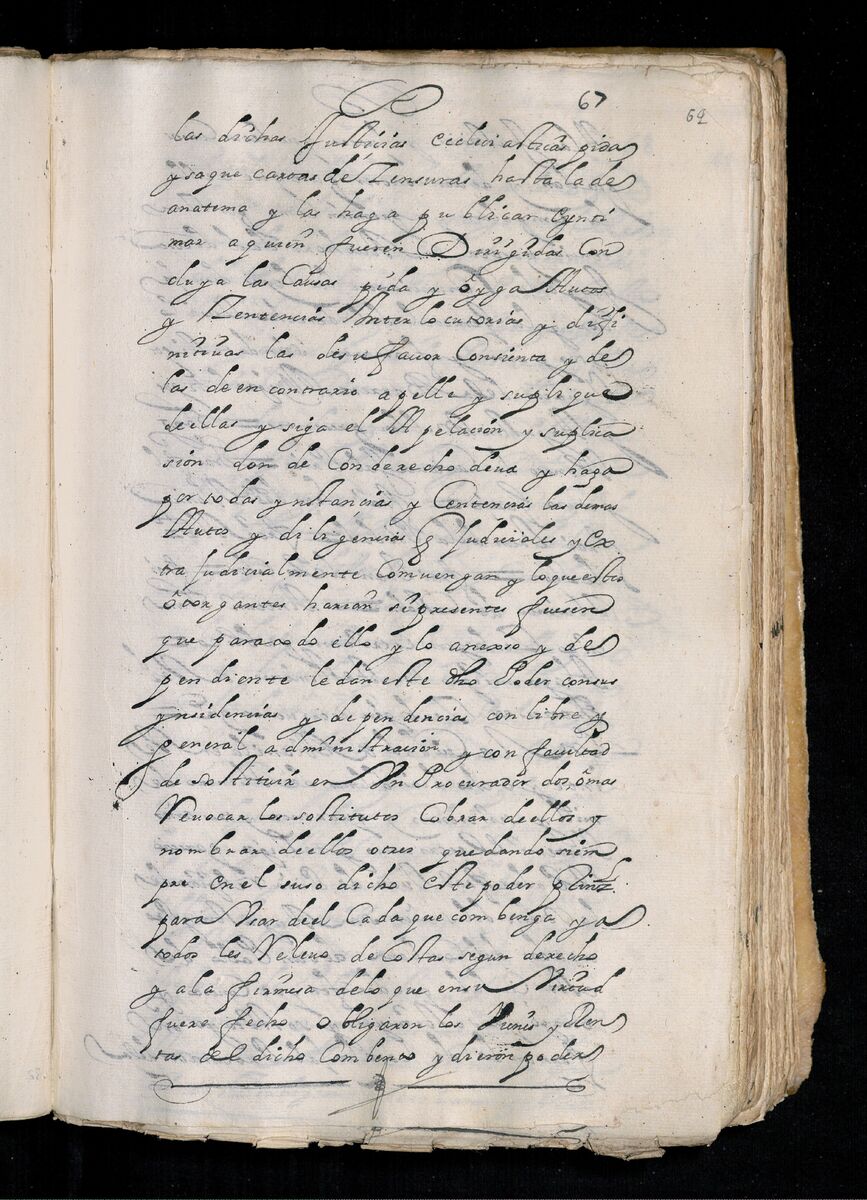 67
62
las dichas Justicias eccleciasticas pida
y saque cartas de Zensuras hasta la de
anatema y las haga publicar e ynti
mar a quien fueren Dirigidas Con
cluya las Causas pida y oyga Autos
y Zentencias Ynterlocutorias y difi
nitivas las de su favor Consienta y de
las de en contrario apelle y suplique
de ellas y siga el Apelación y suplica
sión donde Con derecho deva y haga
por todas ynstancias y Centencias las demas
Autos y diligencias q Judiciales y ex
tra Judicialmente Convengan y lo que estos
otorgantes harian si presentes fuesen
que para todo ello y lo anexso y de
pendiente le dan este dho Poder con sus
ynsidencias y dependencias con libre y
general administración y con facultad
de sostituir en Un Procurador dos, o mas
Revocar los sostitutos Cobrar de ellos y
nombrar de ellos otros quedando siem
pre en el suso dicho este poder Prinzl.
para Usar de el Cada que combenga y a
todos les Relevo de Costas segun derecho
y a la firmesa de lo que en su Virtud
fuere fecho Obligaron los Vienes y Ren
tas del dicho Combento y dieron poder